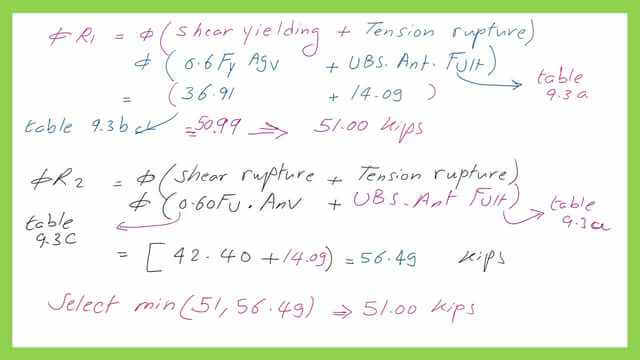 φR1 = φ(shear yielding + Tension rupture)
φ(0.6Fy Agv + UBS. Ant. Fult)
table 9.3a
= (36.91 + 14.09)
table 9.3b = 50.99 ⇒ 51.00 kips
φR2 = φ(shear rupture + Tension rupture)
φ(0.60Fu. Anv + UBS. Ant Fult)
table 9.3c
table 9.3a
= [42.40 + 14.09) = 56.49 kips
Select min(51, 56.49) ⇒ 51.00 kips